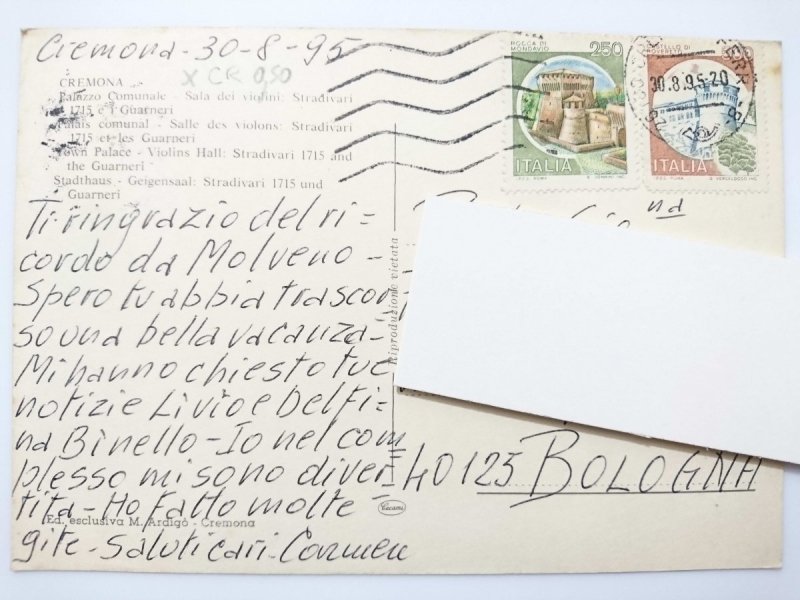 Cremona - 30-8-95
X CR 0,50
CREMONA
Palazzo Comunale - Sala dei violini: Stradivari
1715 e i Guarneri
Palais comunal - Salle des violons: Stradivari
1715 et les Guarneri
Town Palace - Violins Hall: Stradivari 1715 and
the Guarneri
Stadthaus - Geigensaal: Stradivari 1715 und
Guarneri
Ti ringrazio del ri-
cordo da Molveno -
Spero tu abbia trascor-
so una bella vacanza -
Mi hanno chiesto tue
notizie Livio e Delfi-
na Binello - Io nel com
plesso mi sono diver
tita - Ho fatto molte -
gite - Saluti cari - Carmen
Ed. esclusiva M. Ardigò - Cremona
Riproduzione vietata
Cecami
ROCCA DI
MONDAVIO
250
ITALIA
CASTELLO DI
ROVERETO
ITALIA
30.8.95-20
na
40125 BOLOGNA